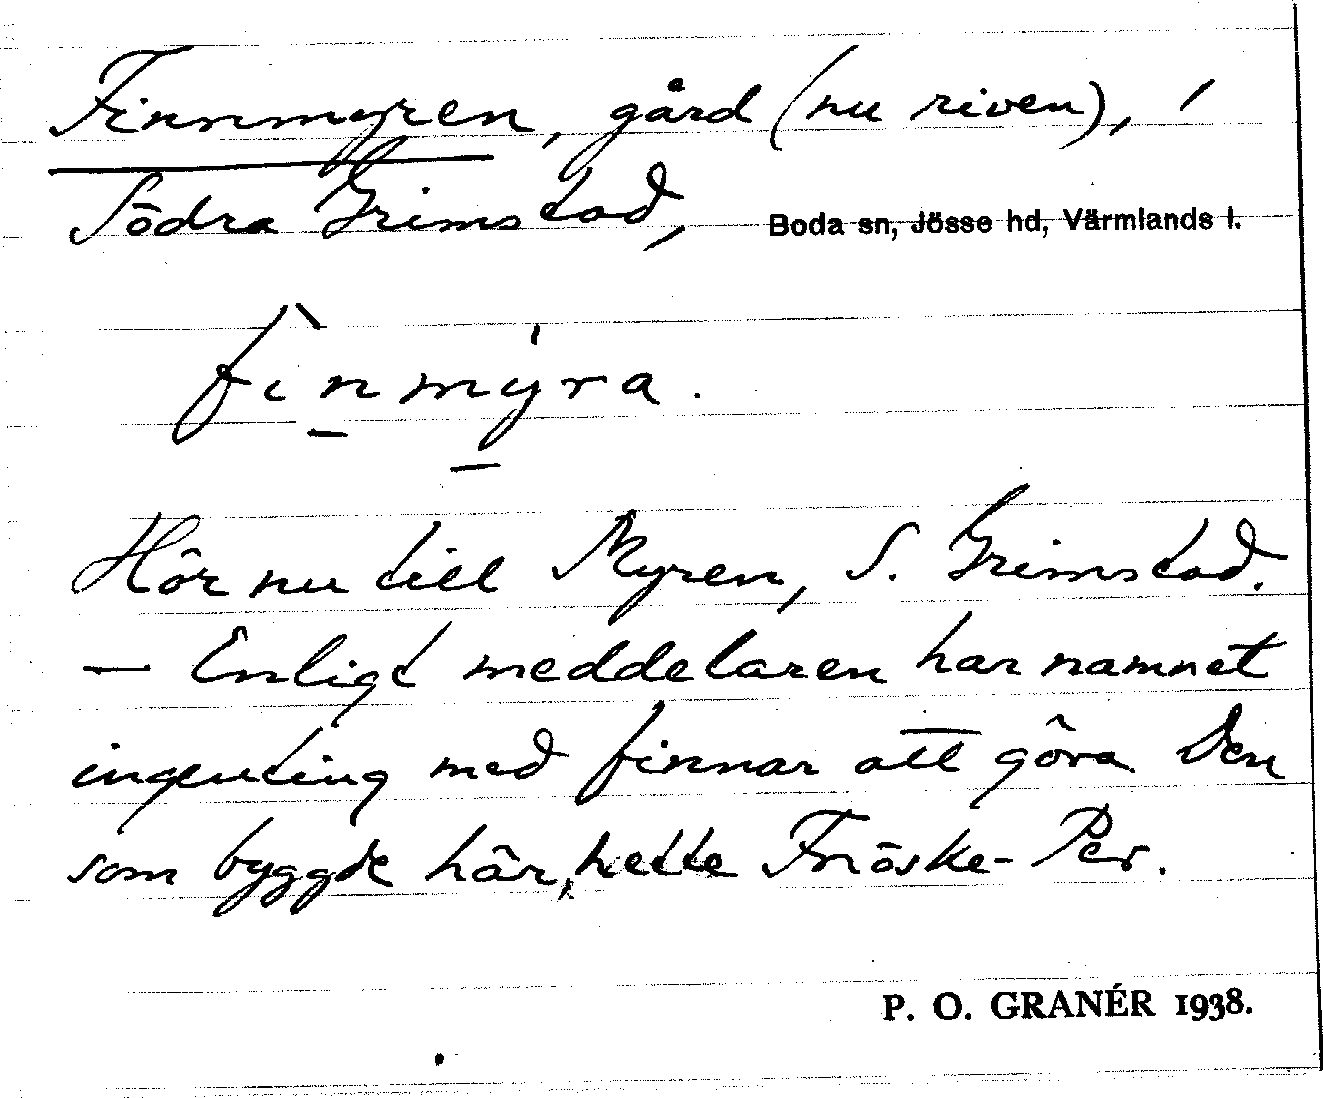 Finnmyren, gård (nu riven), i
Södra Grimstad, Boda sn, Jösse hd, Värmlands l.
fìnmýra.
Hör nu till Myren, S. Grimstad.
— Enligt meddelaren har namnet
ingenting med finnar att göra. Den
som byggde här, hette Fnöske-Per.
P. O. GRANÉR 1938.